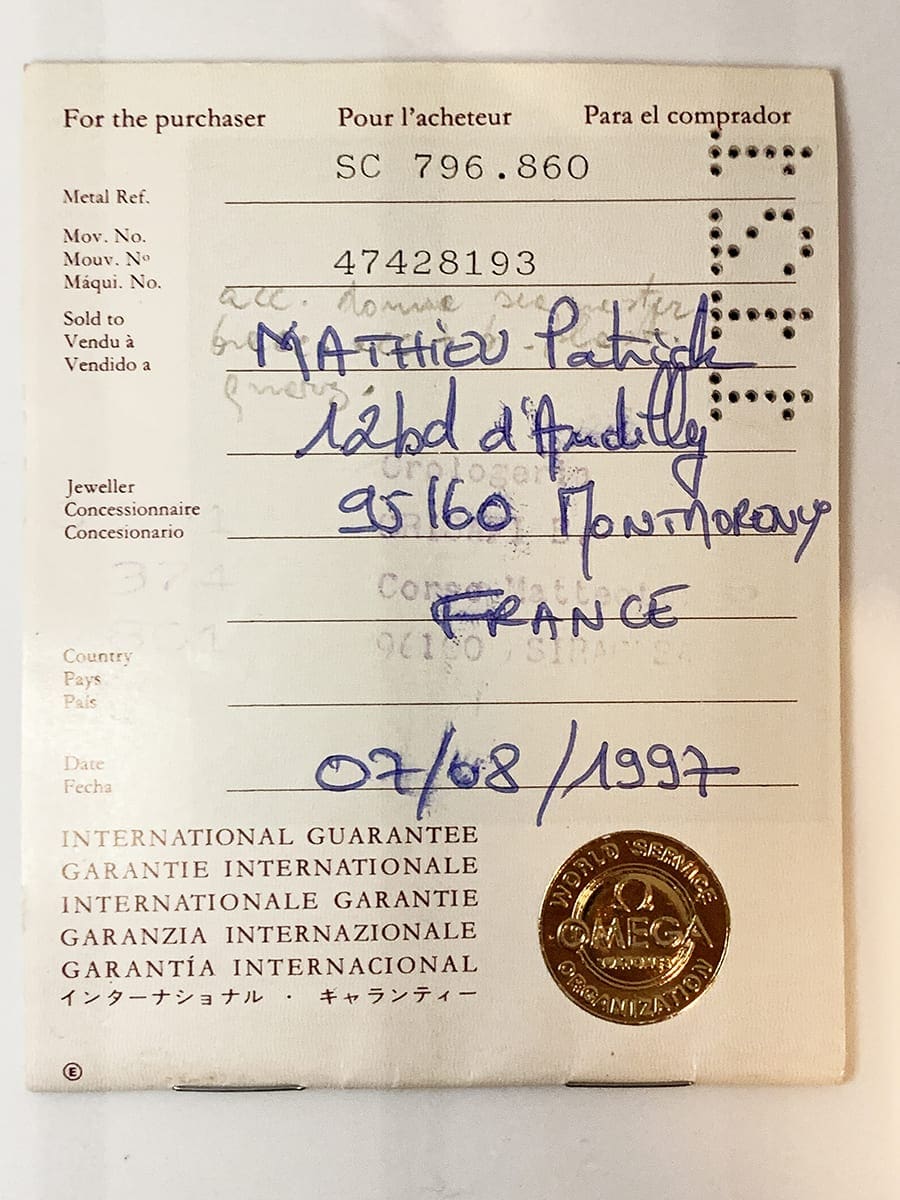 For the purchaser Pour l'acheteur Para el comprador
SC 796.860
Metal Ref.
Mov. No.
Mouv. Nº
Máqui. No.
47428193
acc. donna
Sold to
Vendu à
Vendido a
MATHIEU Patrick
12bd d'Andilly
Orologeria
Jeweller
Concessionnaire
Concesionario
95160 MONTMORENCY
374
Corso Matteo
FRANCE
96100, SIRACUSA
Country
Pays
País
Date
Fecha
07/08/1997
INTERNATIONAL GUARANTEE
GARANTIE INTERNATIONALE
INTERNATIONALE GARANTIE
GARANZIA INTERNAZIONALE
GARANTÍA INTERNACIONAL
インターナショナル · ギャランティー
WORLD SERVICE
Ω
OMEGA
ORGANIZATION
E